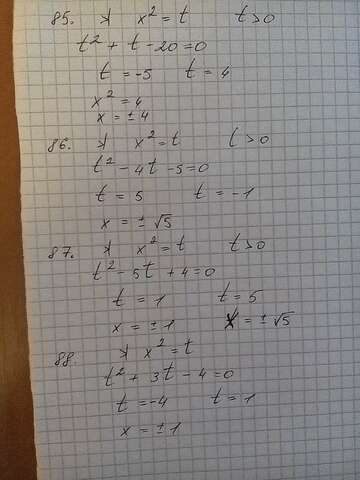 85. ⋊ x² = t t > 0
t² + t - 20 = 0
t = -5 t = 4
x² = 4
x = ± 4
86. ⋊ x² = t t > 0
t² - 4t - 5 = 0
t = 5 t = -1
x = ± √5
87. ⋊ x² = t t > 0
t² - 5t + 4 = 0
t = 1 t = 5
x = ± 1 x = ± √5
88. ⋊ x² = t
t² + 3t - 4 = 0
t = -4 t = 1
x = ± 1